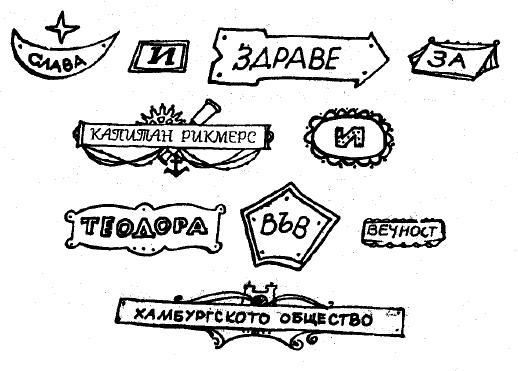 СЛАВА И ЗДРАВЕ ЗА
КАПИТАН РИКМЕРС И
ТЕОДОРА ВЪВ ВЕЧНОСТ
ХАМБУРГСКОТО ОБЩЕСТВО